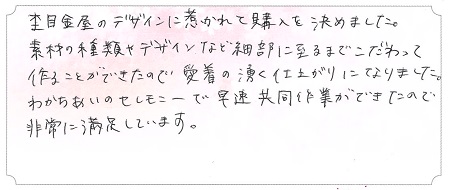 杢目金屋のデザインに惹かれて購入を決めました。
素材の種類やデザインなど細部に至るまでこだわって
作ることができたので愛着の湧く仕上がりになりました。
わかちあいのセレモニーで早速共同作業ができたので
非常に満足しています。